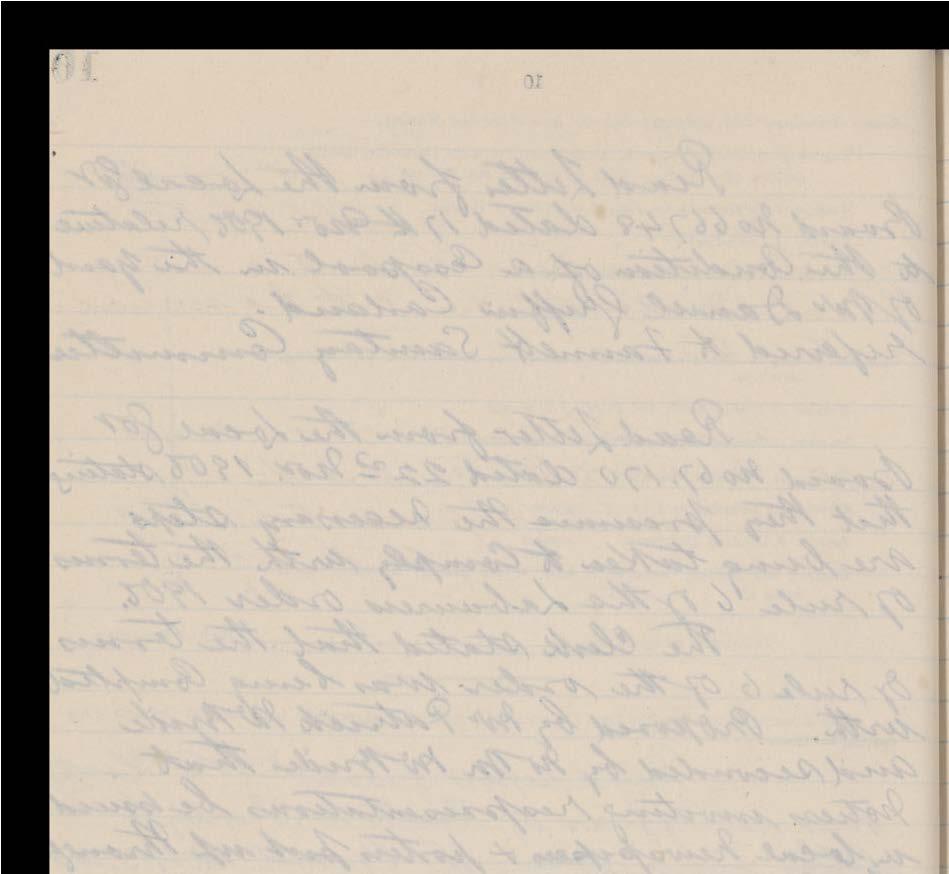 10
10
Read Letter from the Local Gov
Board No 66748 dated 17th Nov 1906 relative
to the condition of a Cesspool in the yard
of Mr Daniel
referred to Sanitary Committee
Read Letter from the Local Gov
Board No 67,170 dated 22nd Nov. 1906 stating
that they presume the necessary steps
are being taken to comply with the terms
of rule 6 of the Labourers order 1906.
The Clerk stated that the terms
of rule 6 of the order was being complied
with. Proposed by Mr Patrick McBride
and seconded by Mr McBride that
notices inviting representations be issued
in local newspapers & posters put up